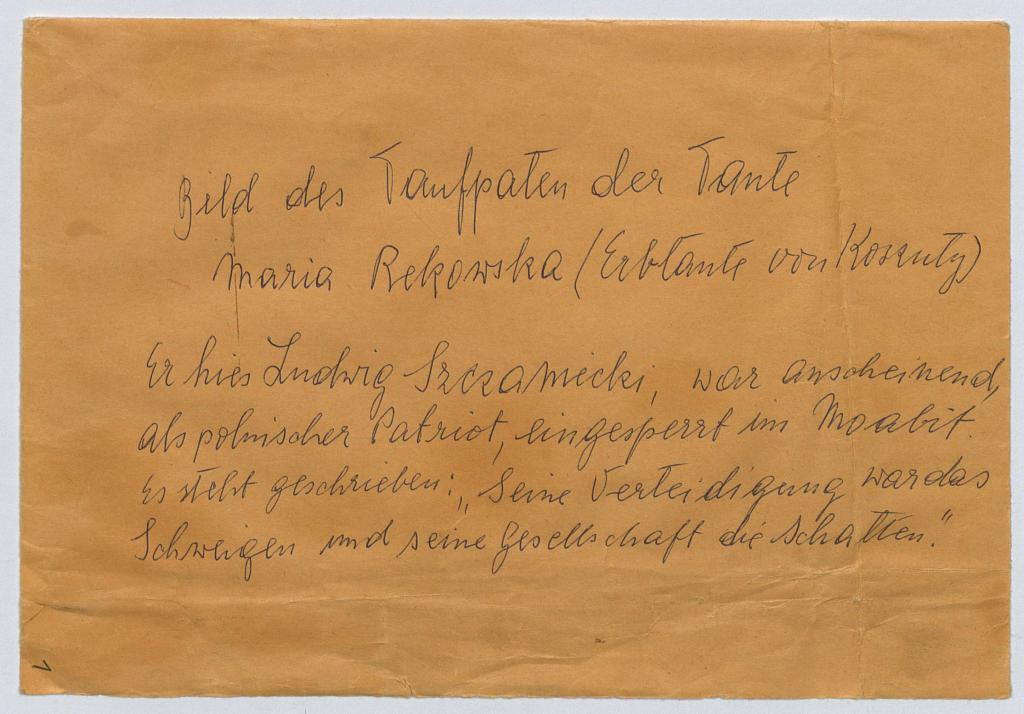 Bild des Taufpaten der Tante
Maria Rekowska (Erbtante von Koszuty)
Er hies Ludwig Szczaniecki, war anscheinend,
als polnischer Patriot, eingesperrt im Moabit.
Es steht geschrieben: „Seine Verteidigung war das
Schweigen und seine Gesellschaft die Schatten.“
1